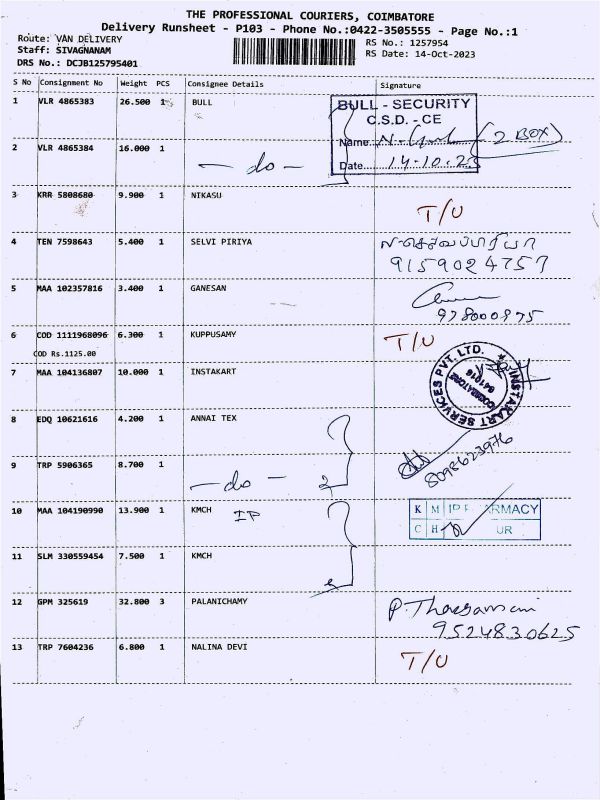 THE PROFESSIONAL COURIERS, COIMBATORE
Delivery Runsheet - P103 - Phone No.:0422-3505555 - Page No.:1
Route: VAN DELIVERY
RS No.: 1257954
Staff: SIVAGNANAM
RS Date: 14-Oct-2023
DRS No.: DCJB125795401
S No Consignment No Weight PCS Consignee Details Signature
1 VLR 4865383 26.500 1 BULL
BULL - SECURITY
C.S.D. - CE
Name
(2 BOX)
Date 14-10-23
2 VLR 4865384 16.000 1
- do -
3 KRR 5808680 9.900 1 NIKASU T/U
4 TEN 7598643 5.400 1 SELVI PIRIYA
9159024757
5 MAA 102357816 3.400 1 GANESAN
978000975
6 COD 1111968096 6.300 1 KUPPUSAMY T/U
COD Rs.1125.00
7 MAA 104136807 10.000 1 INSTAKART
INSTAKART SERVICES PVT. LTD.
COIMBATORE
641016
8 EDQ 10621616 4.200 1 ANNAI TEX
8098623976
9 TRP 5906365 8.700 1
- do -
10 MAA 104190990 13.900 1 KMCH IP
K M
C H
11 SLM 330559454 7.500 1 KMCH
12 GPM 325619 32.800 3 PALANICHAMY
9524830625
13 TRP 7604236 6.800 1 NALINA DEVI T/U